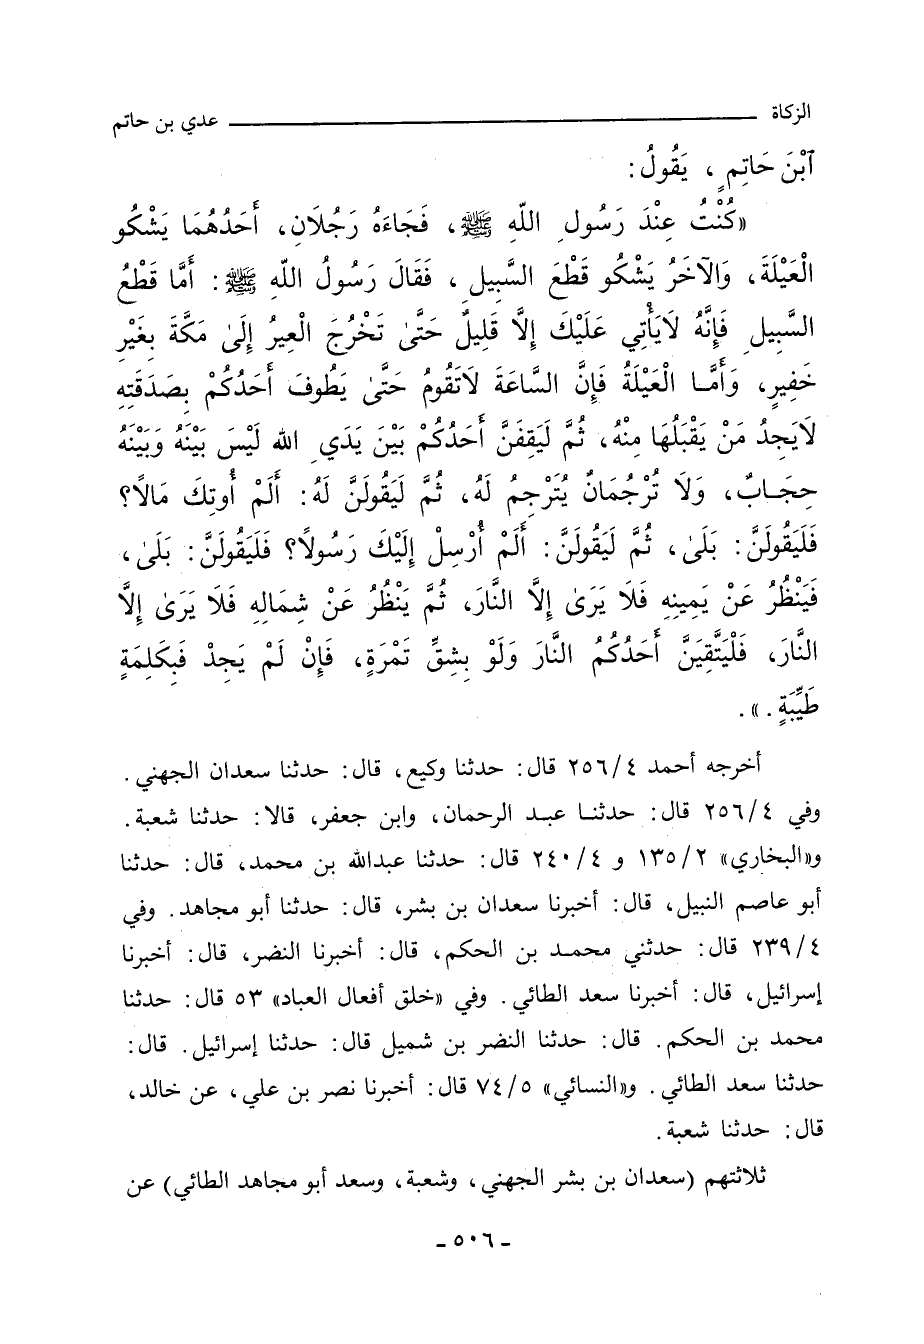 الزكاة ــــــــــــــــــــــــــــــ عدي بن حاتم
آبْنَ حَاتِمٍ ، يَقُولُ:
«كُنْتُ عِنْدَ رَسُولِ اللّهِ ﷺ، فَجَاءَهُ رَجُلَانِ، أَحَدُهُمَا يَشْكُو
الْعَيْلَةَ، وَالآخَرُ يَشْكُو قَطْعَ السَّبِيلِ، فَقَالَ رَسُولُ اللّهِ ﷺ: أَمَّا قَطْعُ
السَّبِيلِ فَإِنَّهُ لَايَأْتِي عَلَيْكَ إِلَّا قَلِيلٌ حَتَّىٰ تَخْرُجَ الْعِيرُ إِلَىٰ مَكَّةَ بِغَيْرِ
خَفِيرٍ، وَأَمَّا الْعَيْلَةُ فَإِنَّ السَّاعَةَ لَاتَقُومُ حَتَّىٰ يَطُوفَ أَحَدُكُمْ بِصَدَقَتِهِ
لَايَجِدُ مَنْ يَقْبَلُهَا مِنْهُ، ثُمَّ لَيَقِفَنَّ أَحَدُكُمْ بَيْنَ يَدَيِ الله لَيْسَ بَيْنَهُ وَبَيْنَهُ
حِجَابٌ، وَلَا تُرْجُمَانٌ يُتَرْجِمُ لَهُ، ثُمَّ لَيَقُولَنَّ لَهُ: أَلَمْ أُوتِكَ مَالًا؟
فَلَيَقُولَنَّ: بَلَىٰ، ثُمَّ لَيَقُولَنَّ: أَلَمْ أُرْسِلْ إِلَيْكَ رَسُولًا؟ فَلَيَقُولَنَّ: بَلَىٰ،
فَيَنْظُرُ عَنْ يَمِينِهِ فَلَا يَرَىٰ إِلَّا النَّارَ، ثُمَّ يَنْظُرُ عَنْ شِمَالِهِ فَلَا يَرَىٰ إِلَّا
النَّارَ، فَلْيَتَّقِيَنَّ أَحَدُكُمُ النَّارَ وَلَوْ بِشِقِّ تَمْرَةٍ، فَإِنْ لَمْ يَجِدْ فَبِكَلِمَةٍ
طَيِّبَةٍ.».
أخرجه أحمد ٢٥٦/٤ قال: حدثنا وكيع، قال: حدثنا سعدان الجهني.
وفي ٢٥٦/٤ قال: حدثنا عبد الرحمان، وابن جعفر، قالا: حدثنا شعبة.
و«البخاري» ١٣٥/٢ و ٢٤٠/٤ قال: حدثنا عبدالله بن محمد، قال: حدثنا
أبو عاصم النبيل، قال: أخبرنا سعدان بن بشر، قال: حدثنا أبو مجاهد. وفي
٢٣٩/٤ قال: حدثني محمد بن الحكم، قال: أخبرنا النضر، قال: أخبرنا
إسرائيل، قال: أخبرنا سعد الطائي. وفي «خلق أفعال العباد» ٥٣ قال: حدثنا
محمد بن الحكم. قال: حدثنا النضر بن شميل قال: حدثنا إسرائيل. قال:
حدثنا سعد الطائي. و«النسائي» ٧٤/٥ قال: أخبرنا نصر بن علي، عن خالد،
قال: حدثنا شعبة.
ثلاثتهم (سعدان بن بشر الجهني، وشعبة، وسعد أبو مجاهد الطائي) عن
ـ ٥٠٦ ـ